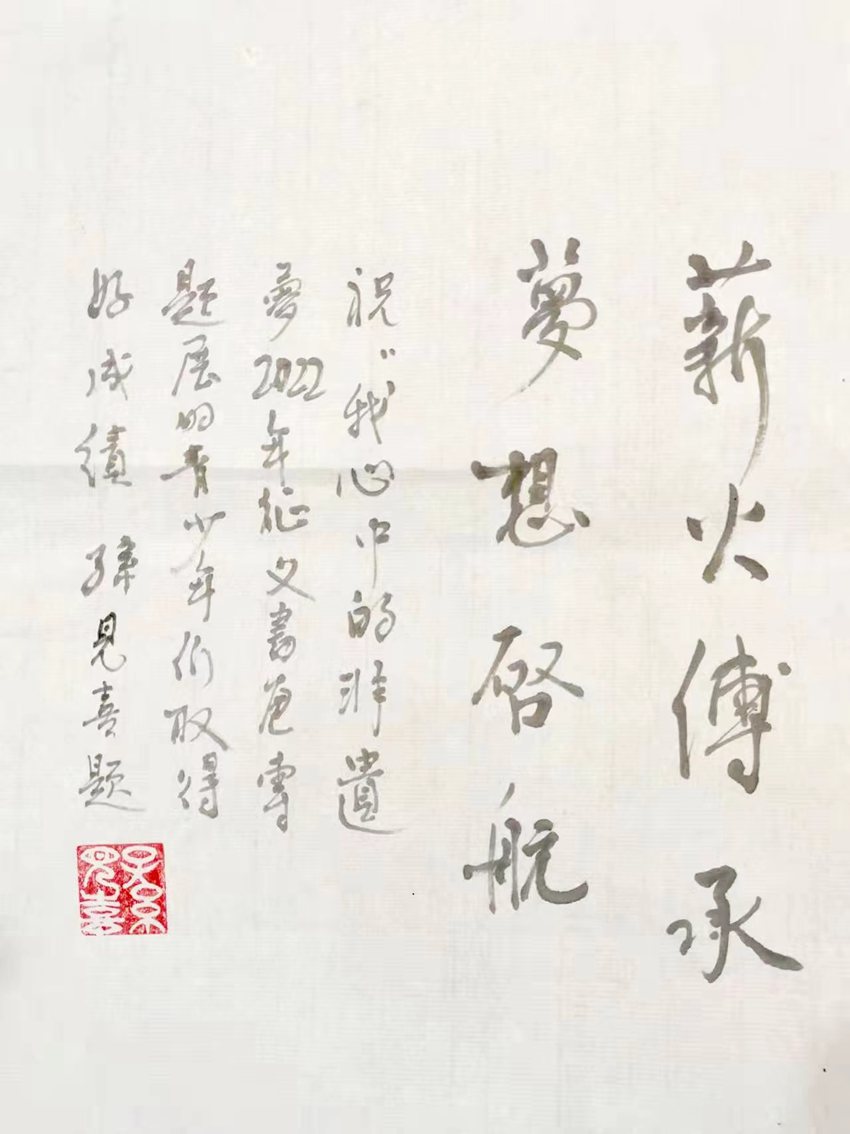 薪火傳承
夢想啓航
祝“我心中的非遺
夢2022年征文書畫專
题展的青少年们取得
好成績 孫見喜題
孫見喜